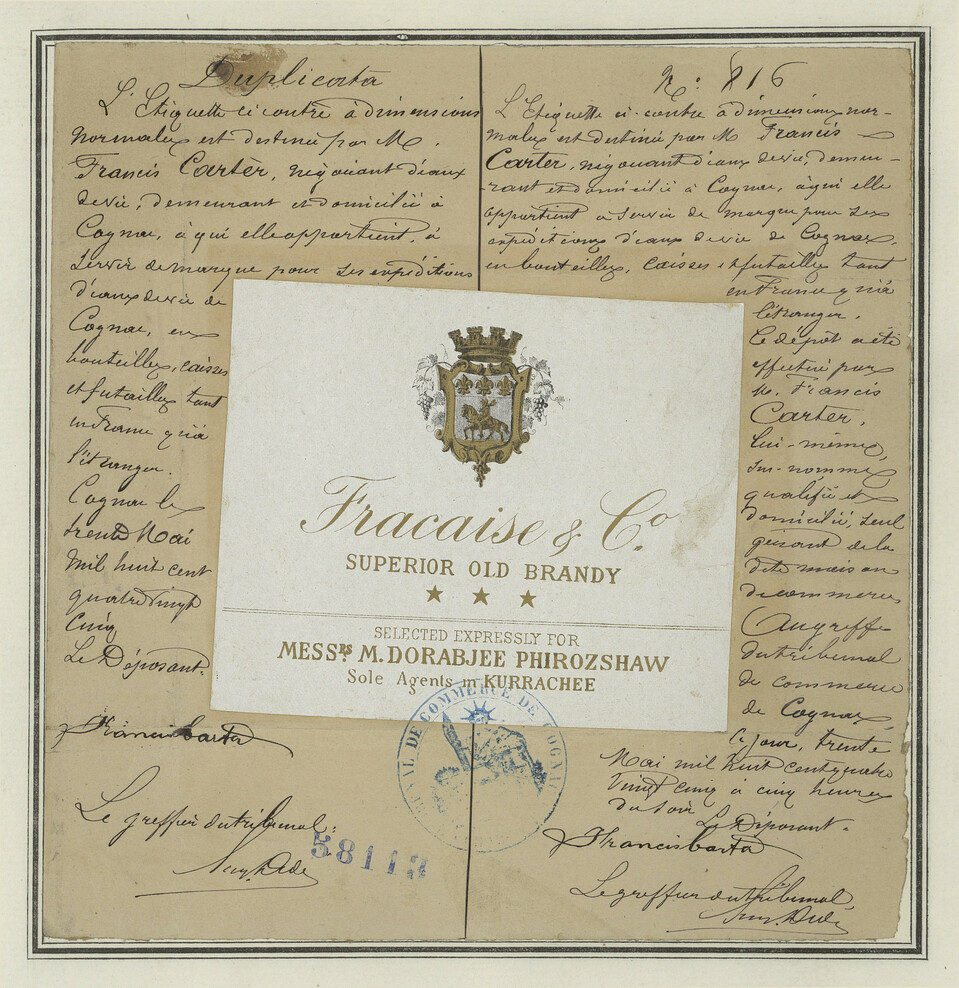 Duplicata
L'Etiquette ci contre à dimensions
normales est destinée par M.
Francis Carter, négociant d'eaux
de vie, demeurant et domicilié à
Cognac, à qui elle appartient, à
servir de marque pour ses expéditions
d'eaux de vie de
Cognac, en
bouteilles, caisses
et futailles tant
en France qu'à
l'étranger.
Cognac le
trente Mai
Mil huit cent
quatre vingt
Cinq
Le Déposant.
Francis Carter
Le greffier du tribunal:
58113
No: 816
L'Etiquette ci-contre à dimensions nor-
males est destinée par M Francis
Carter, négociant d'eaux de vie, demeu-
-rant et domicilié à Cognac, à qui elle
appartient à servir de marque pour ses
expéditions d'eaux de vie de Cognac,
en bouteilles, caisses et futailles tant
en France qu'à
l'étranger.
Le dépôt a été
effectué par
M. Francis
Carter,
lui-même,
sus-nommé
qualifié et
domicilié, seul
gérant de la
dite maison
de commerce
Au greffe
du tribunal
de commerce
de Cognac,
Ce jour, trente
Mai mil huit cent quatre
vingt cinq à cinq heures
du soir
Le Déposant.
Francis Carter
Le greffier du tribunal,
Fracaise & Co.
SUPERIOR OLD BRANDY
★ ★ ★
SELECTED EXPRESSLY FOR
MESSRS M. DORABJEE PHIROZSHAW
Sole Agents in KURRACHEE
TRIBUNAL DE COMMERCE DE COGNAC